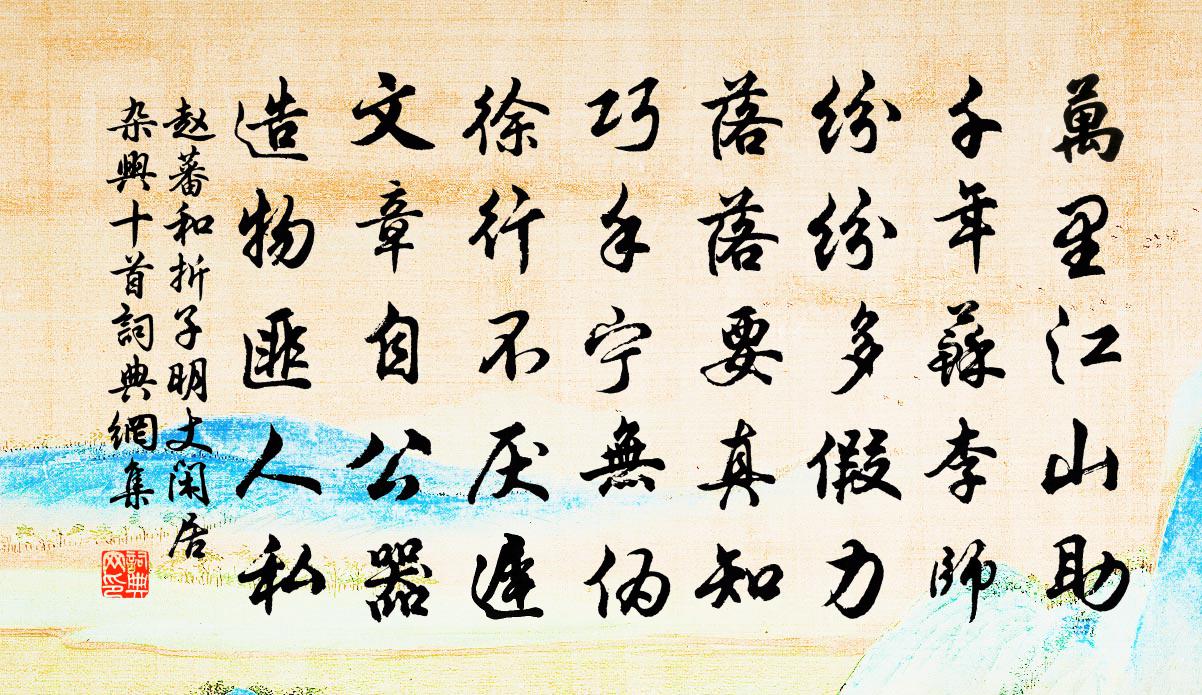 萬里江山助
千年蘇李師
紛紛多假力
落落要真知
巧手宁無伪
徐行不厌遲
文章自公器
造物匪人私
赵蕃和折子明丈闲居
杂興十首詞典網集
詞典网印